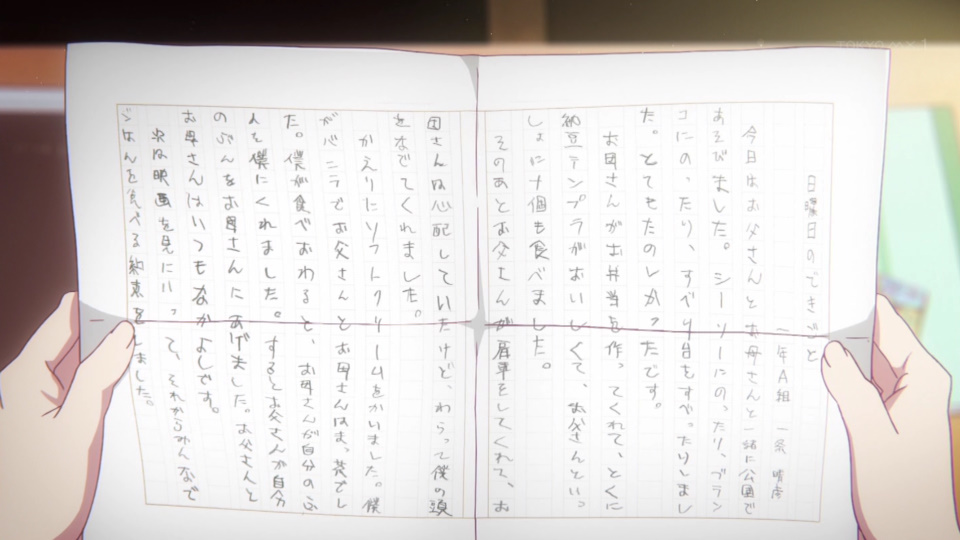 日曜日のできごと
一年A組 一条 晴彦
今日はお父さんとお母さんと一緒に公園で
あそびました。シーソーにのったり、ブラン
コにのったり、すべり台をすべったりしまし
た。とてもたのしかったです。
お母さんがお弁当を作ってくれて、とくに
納豆テンプラがおいしくて、お父さんといっ
しょに十個も食べました。
そのあとお父さんが肩車をしてくれて、お
母さんは心配していたけど、わらって僕の頭
をなでてくれました。
かえりにソフトクリームをかいました。僕
がバニラでお父さんとお母さんはま、茶でし
た。僕が食べおわると、お母さんが自分のぶ
んを僕にくれました。するとお父さんが自分
のぶんをお母さんにあげました。お父さんと
お母さんはいつもなかよしです。
次は映画を見にいって、それからみんなで
ごはんを食べる約束をしました。
TOKYO MX1